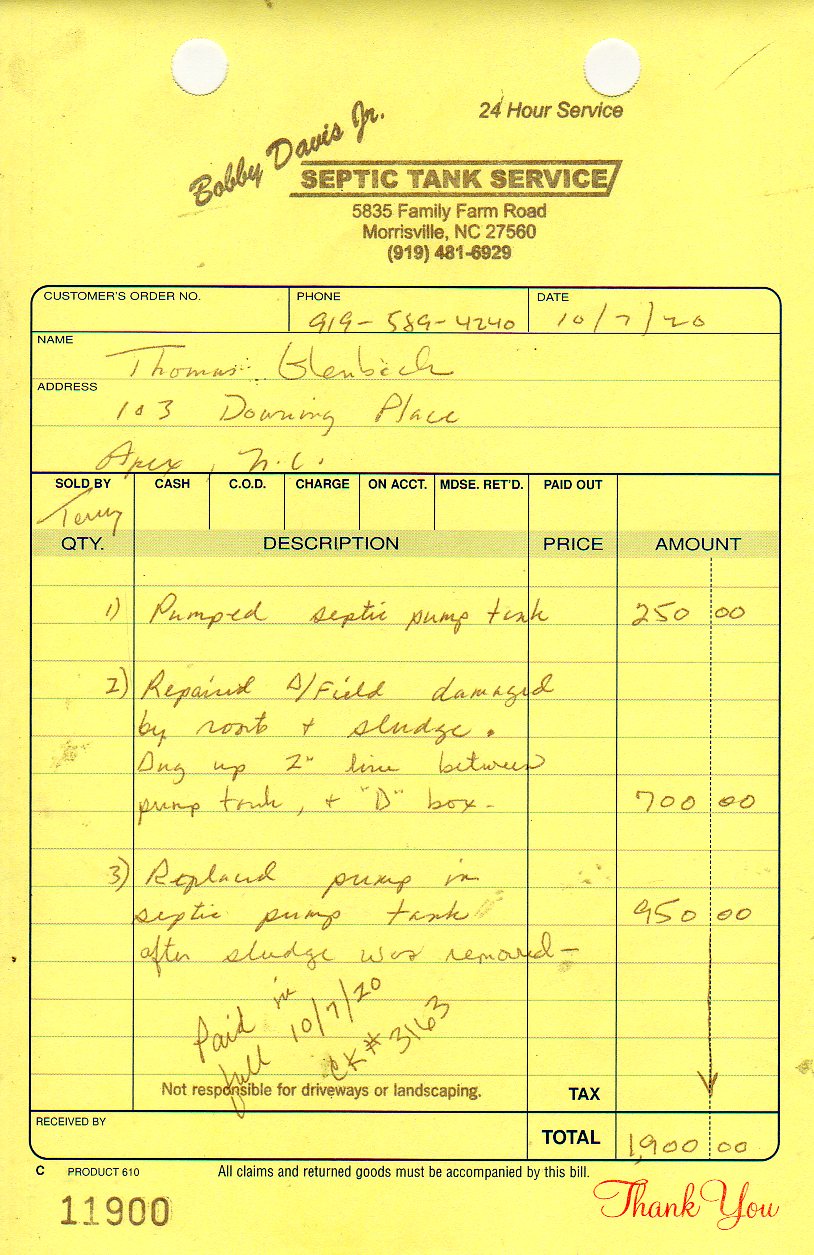 24 Hour Service
Bobby Davis Jr.
SEPTIC TANK SERVICE
5835 Family Farm Road
Morrisville, NC 27560
(919) 481-6929
CUSTOMER'S ORDER NO. PHONE DATE
919-589-4240 10/7/20
NAME
Thomas Glenbach
ADDRESS
103 Downing Place
Apex, N.C.
SOLD BY CASH C.O.D. CHARGE ON ACCT. MDSE. RET'D. PAID OUT
Terry
QTY. DESCRIPTION PRICE AMOUNT
1) Pumped septic pump tank 250 00
2) Repaired D/Field damaged
by roots + sludge.
Dug up 2" line between
pump tank, + "D" box- 700 00
3) Replaced pump in
septic pump tank 950 00
after sludge was removed-
Paid in
full 10/7/20
CK# 3163
Not responsible for driveways or landscaping.
TAX
RECEIVED BY
TOTAL 1,900 00
C PRODUCT 610 All claims and returned goods must be accompanied by this bill.
11900
Thank You